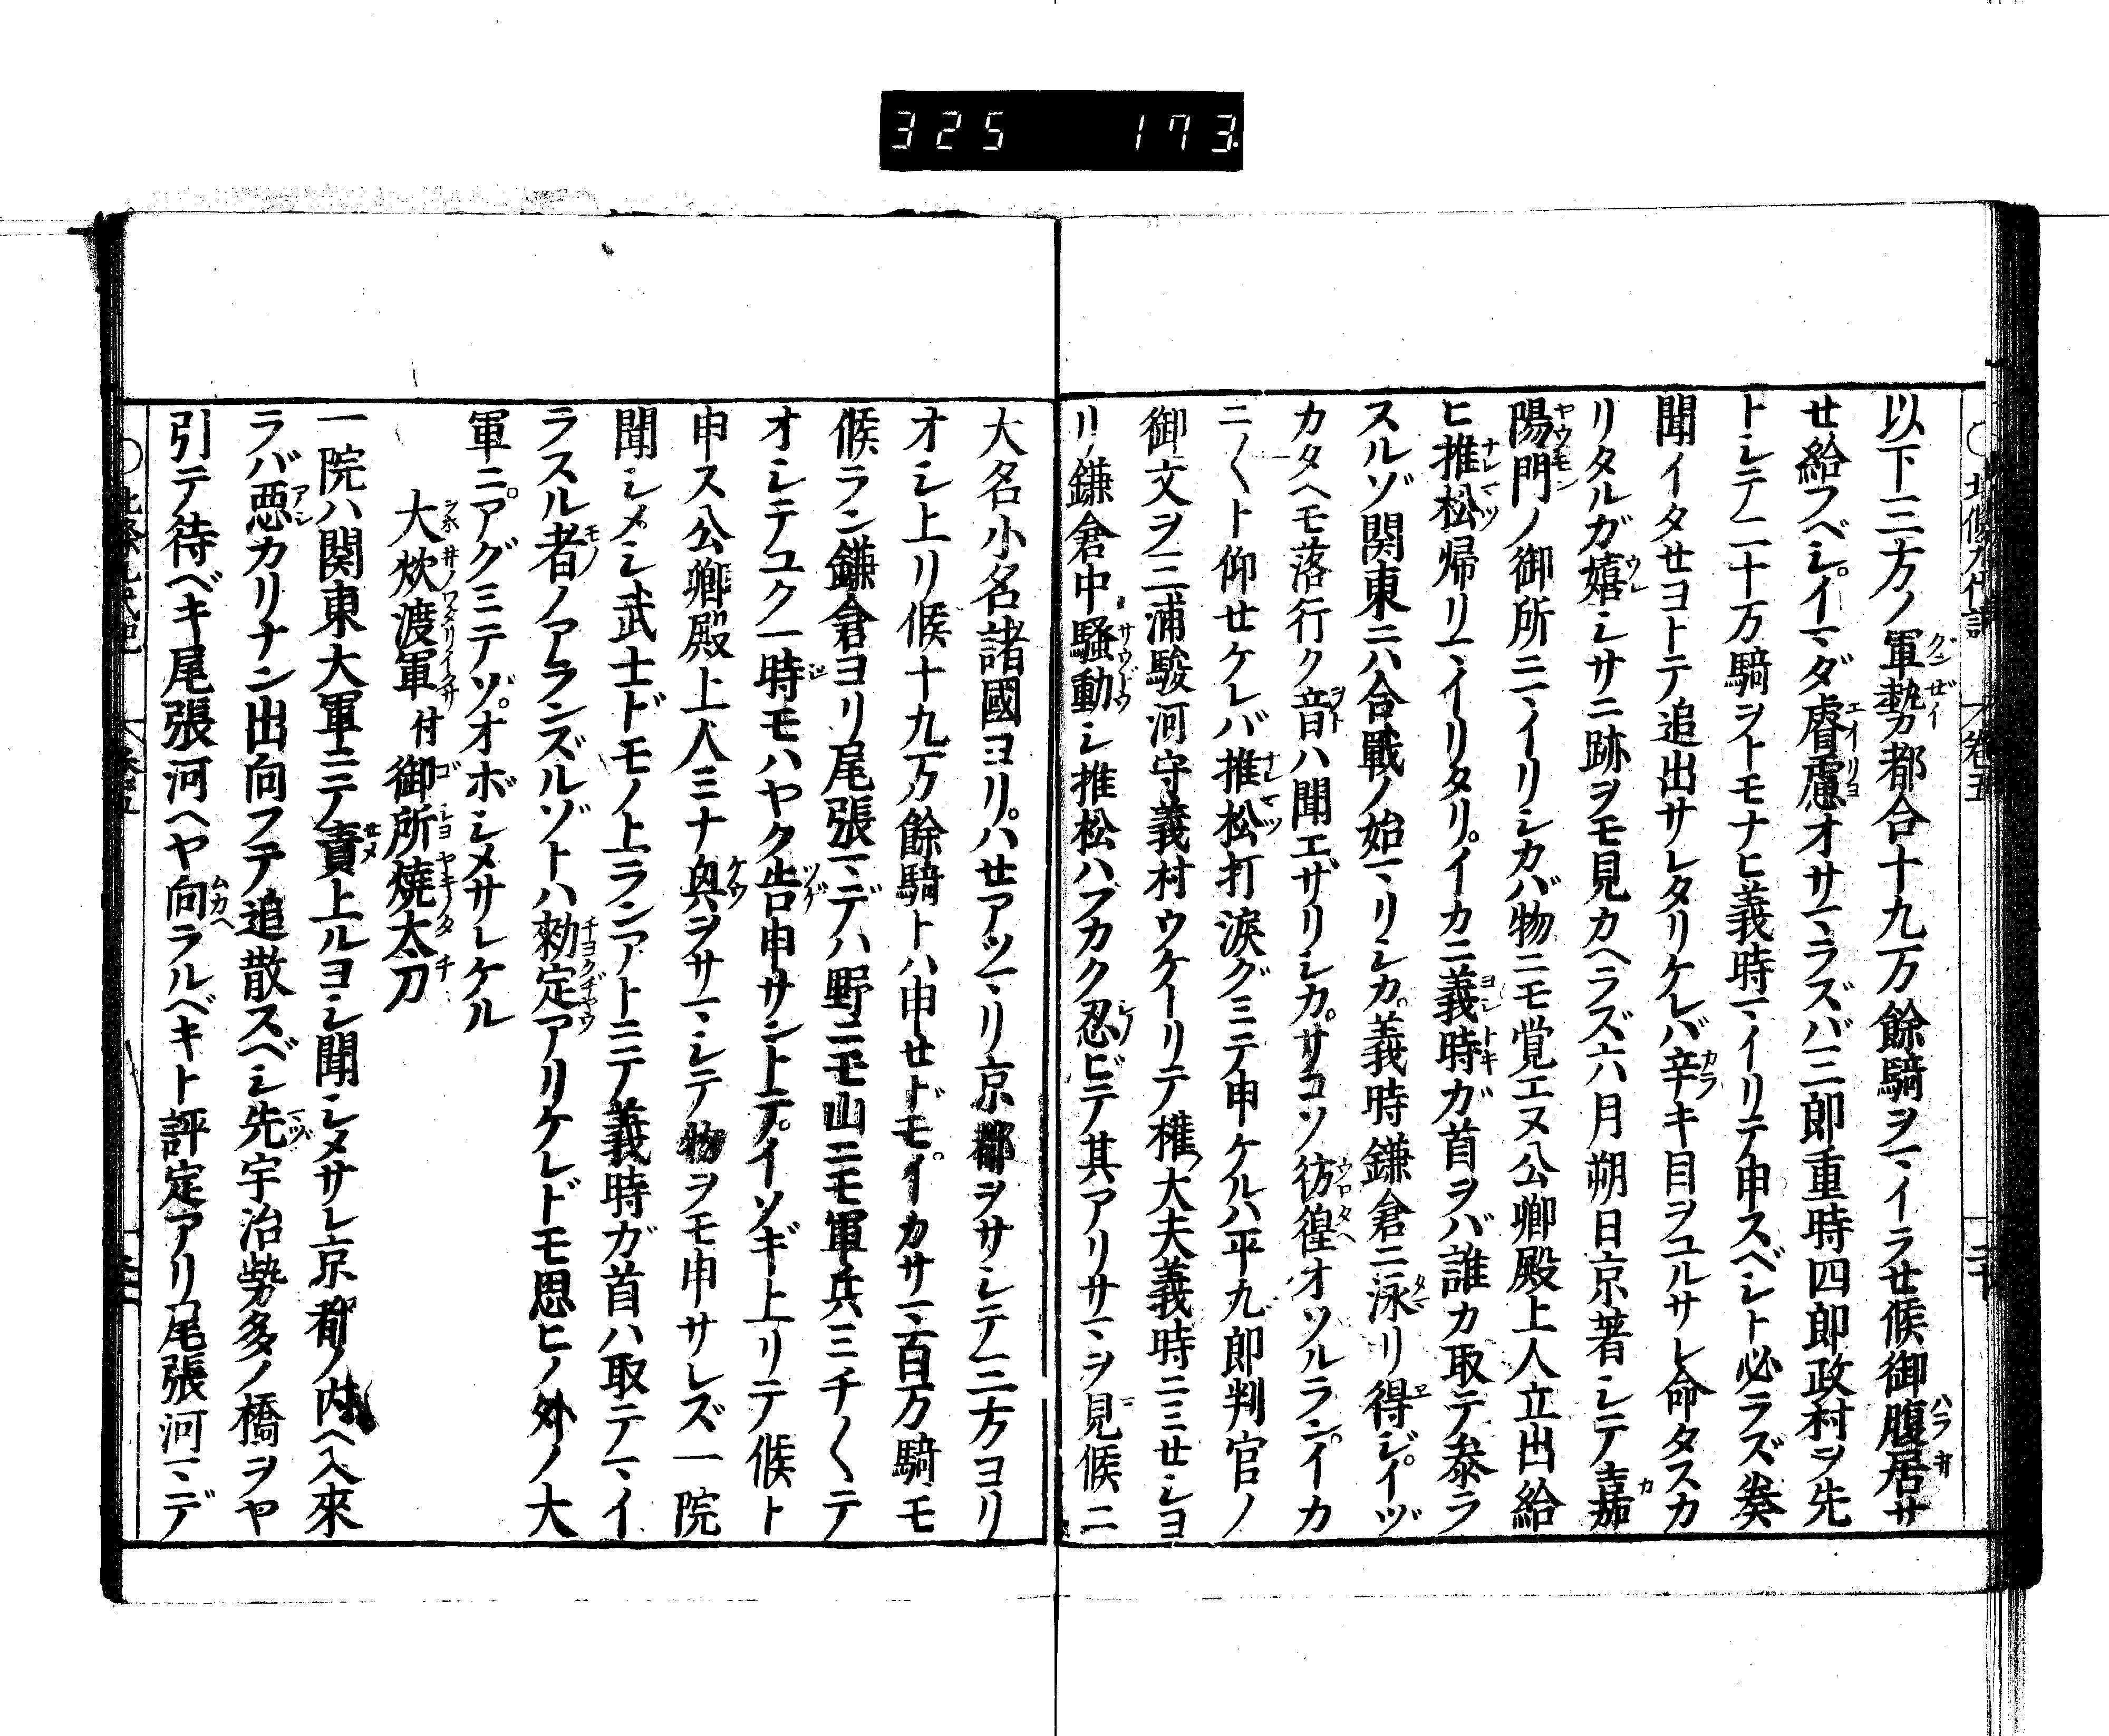 325 173
以下三方ノ軍勢都合十九万餘騎ヲマイラせ候御腹居サ
せ給フベシイマダ睿慮オサマラズバ三郎重時四郎政村ヲ先
トシテ二十万騎ヲトモナヒ義時マイリテ申スベシト必ラズ奏
聞イタサせヨトテ追出サレタリケレバ辛キ目ヲユルサレ命タスカ
リタルガ嬉シサニ跡ヲモ見カヘラズ六月朔日京著シテ嘉
陽門ノ御所ニマイリシカバ物ニモ覚エヌ公卿殿上人立出給
ヒ推松帰リマイリタリイカニ義時ガ首ヲバ誰カ取テ参ラ
スルゾ関東ニハ合戦ノ始マリシカ義時鎌倉ニ泳リ得ジイヅ
カタヘモ落行ク音ハ聞エザリシカサコソ彷徨オソルランイカ
ニ〱ト仰せケレバ推松打涙グミテ申ケルハ平九郎判官ノ
御文ヲ三浦駿河守義村ウケトリテ権大夫義時ニミせシヨ
リ鎌倉中騒動シ推松ハフカク忍ビテ其アリサマヲ見候ニ
大名小名諸國ヨリハせアツマリ京都ヲサシテ三方ヨリ
オシ上リ候十九万餘騎トハ申せドモイカサマ百万騎モ
候ラン鎌倉ヨリ尾張マデハ野ニモ山ニモ軍兵ミチ〱テ
オシテユク一時モハヤク告申サントテイソギ上リテ候ト
申ス公卿殿上人ミナ興ヲサマシテ物ヲモ申サレズ一院
聞シメシ武士ドモノ上ランアトニテ義時ガ首ハ取テマイ
ラスル者ノアランズルゾトハ勅定アリケレドモ思ヒノ外ノ大
軍ニアグミテゾオボシメサレケル
大炊渡軍付御所焼太刀
一院ハ関東大軍ニテ責上ルヨシ聞シメサレ京都ノ内ヘ入來
ラバ悪カリナン出向フテ追散スベシ先宇治勢多ノ橋ヲヤ
引テ待ベキ尾張河ヘヤ向ラルベキト評定アリ尾張河マデ